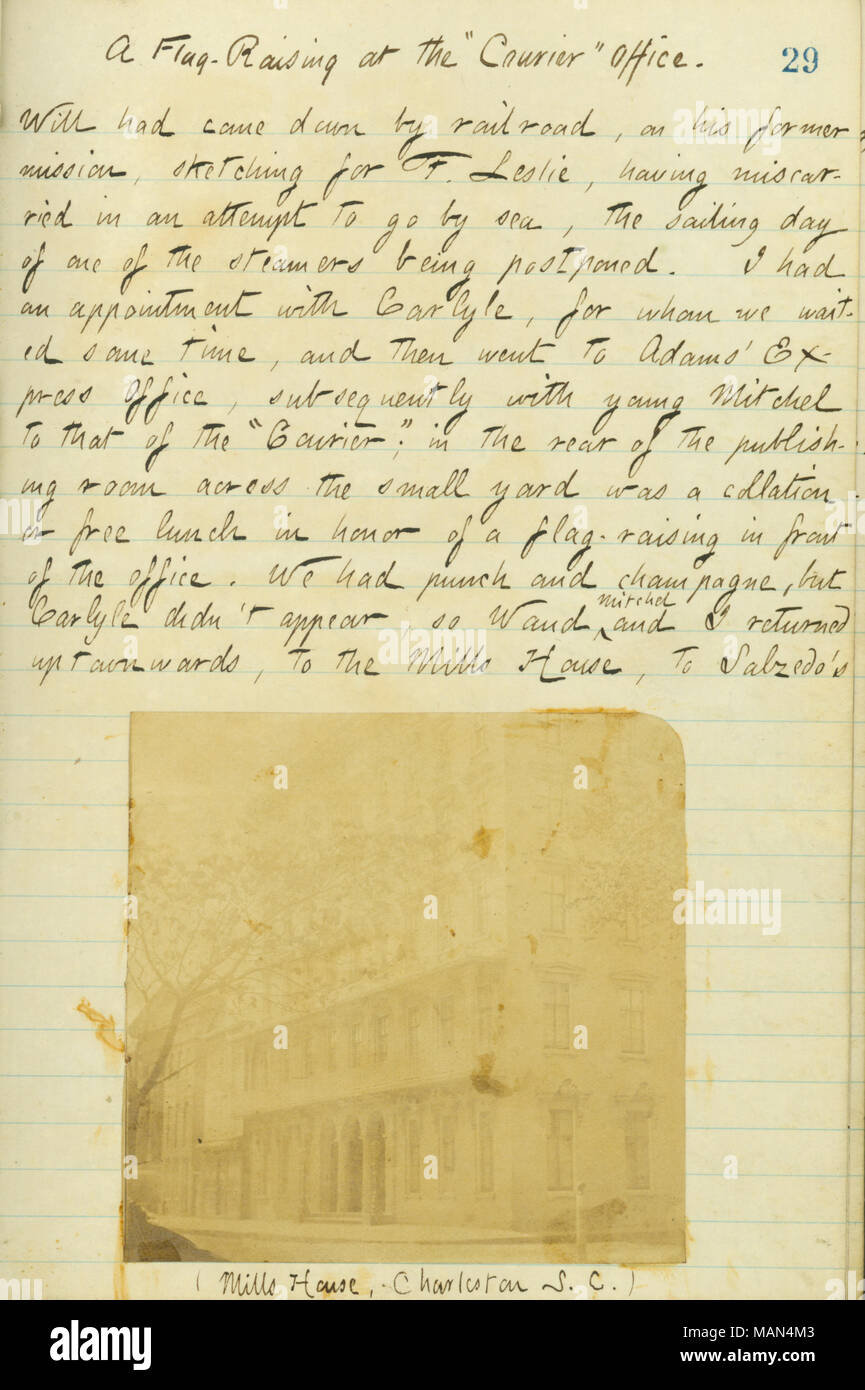 A Flag-Raising at the "Courier" Office.
29
Will had come down by railroad, on his former
mission, sketching for F. Leslie, having miscar-
ried in an attempt to go by sea, the sailing day
of one of the steamers being postponed. I had
an appointment with Carlyle, for whom we wait-
ed some time, and then went to Adams' Ex-
press Office, subsequently with young Mitchel
to that of the "Courier"; in the rear of the publish-
ing room across the small yard was a collation
or free lunch in honor of a flag-raising in front
of the office. We had punch and champagne, but
Carlyle didn't appear, so Waud, Mitchel and I returned
uptownwards, to the Mills House, to Salzedo's
(Mills House, Charleston S. C.)
alamy
a
a
a
alamy
a
a
a
alamy
Image ID: MAN4M3
www.alamy.com